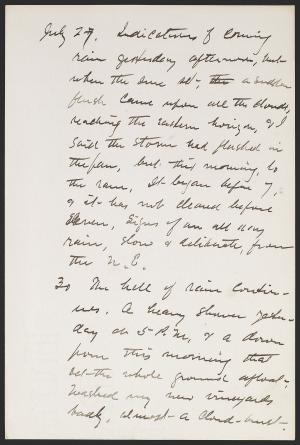 July 29. Indications of coming
rain yesterday afternoon, but
when the sun set, the a sudden
flush came upon all the clouds,
reaching the eastern horizon, & I
said the storm had flashed in
the pan, but this morning, lo
the rain, It began before 7,
& it has not cleared before
Eleven, Signs of an all day
rain, slow & deliberate, from
the N.E.
30 The hell of rain contin-
ues. A heavy shower yester-
day at 5 P.M. & a down
pour this morning that
set the whole ground afloat,
Washed my new vineyards
badly, almost a cloud-burst.